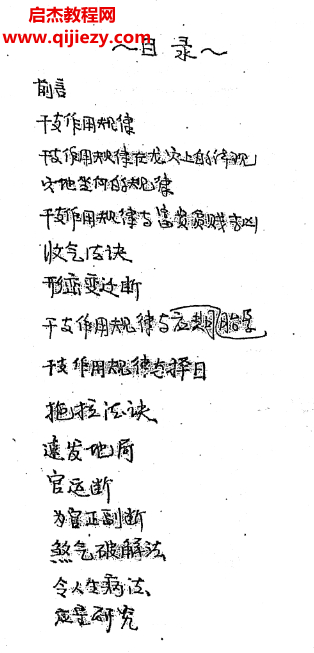 启杰教程网
www.qijiezy.com
～目录～
前言
干支作用规律
干支作用规律在龙穴上的体现
穴地坐向的规律
干支作用规律与富贵贫贱吉凶
收气法诀
形峦变迁断
干支作用规律与应期胎孕
干支作用规律与择日
拖拉法诀
速发地局
官运断
为官正副断
煞气破解法
令人生病法
研究